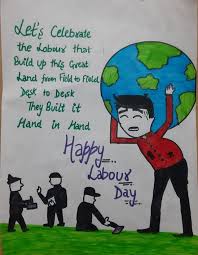 Let's Celebrate
the Labour that
Build up this Great
Land from Field to Field
Desk to Desk
They Built it
Hand in Hand
Happy
Labour
Day